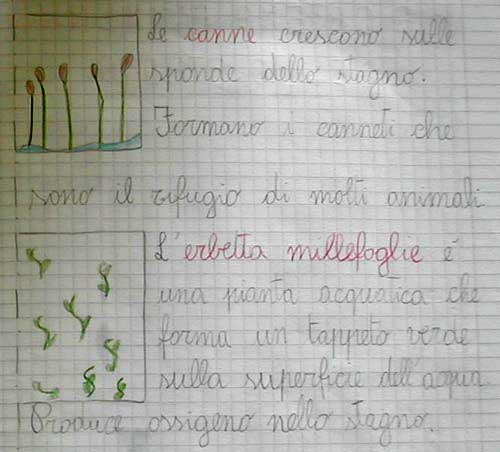 Le canne crescono sulle
sponde dello stagno.
Formano i canneti che
sono il rifugio di molti animali
L'erbetta millefoglie é
una pianta acquatica che
forma un tappeto verde
sulla superficie dell'acqua.
Produce ossigeno nello stagno.